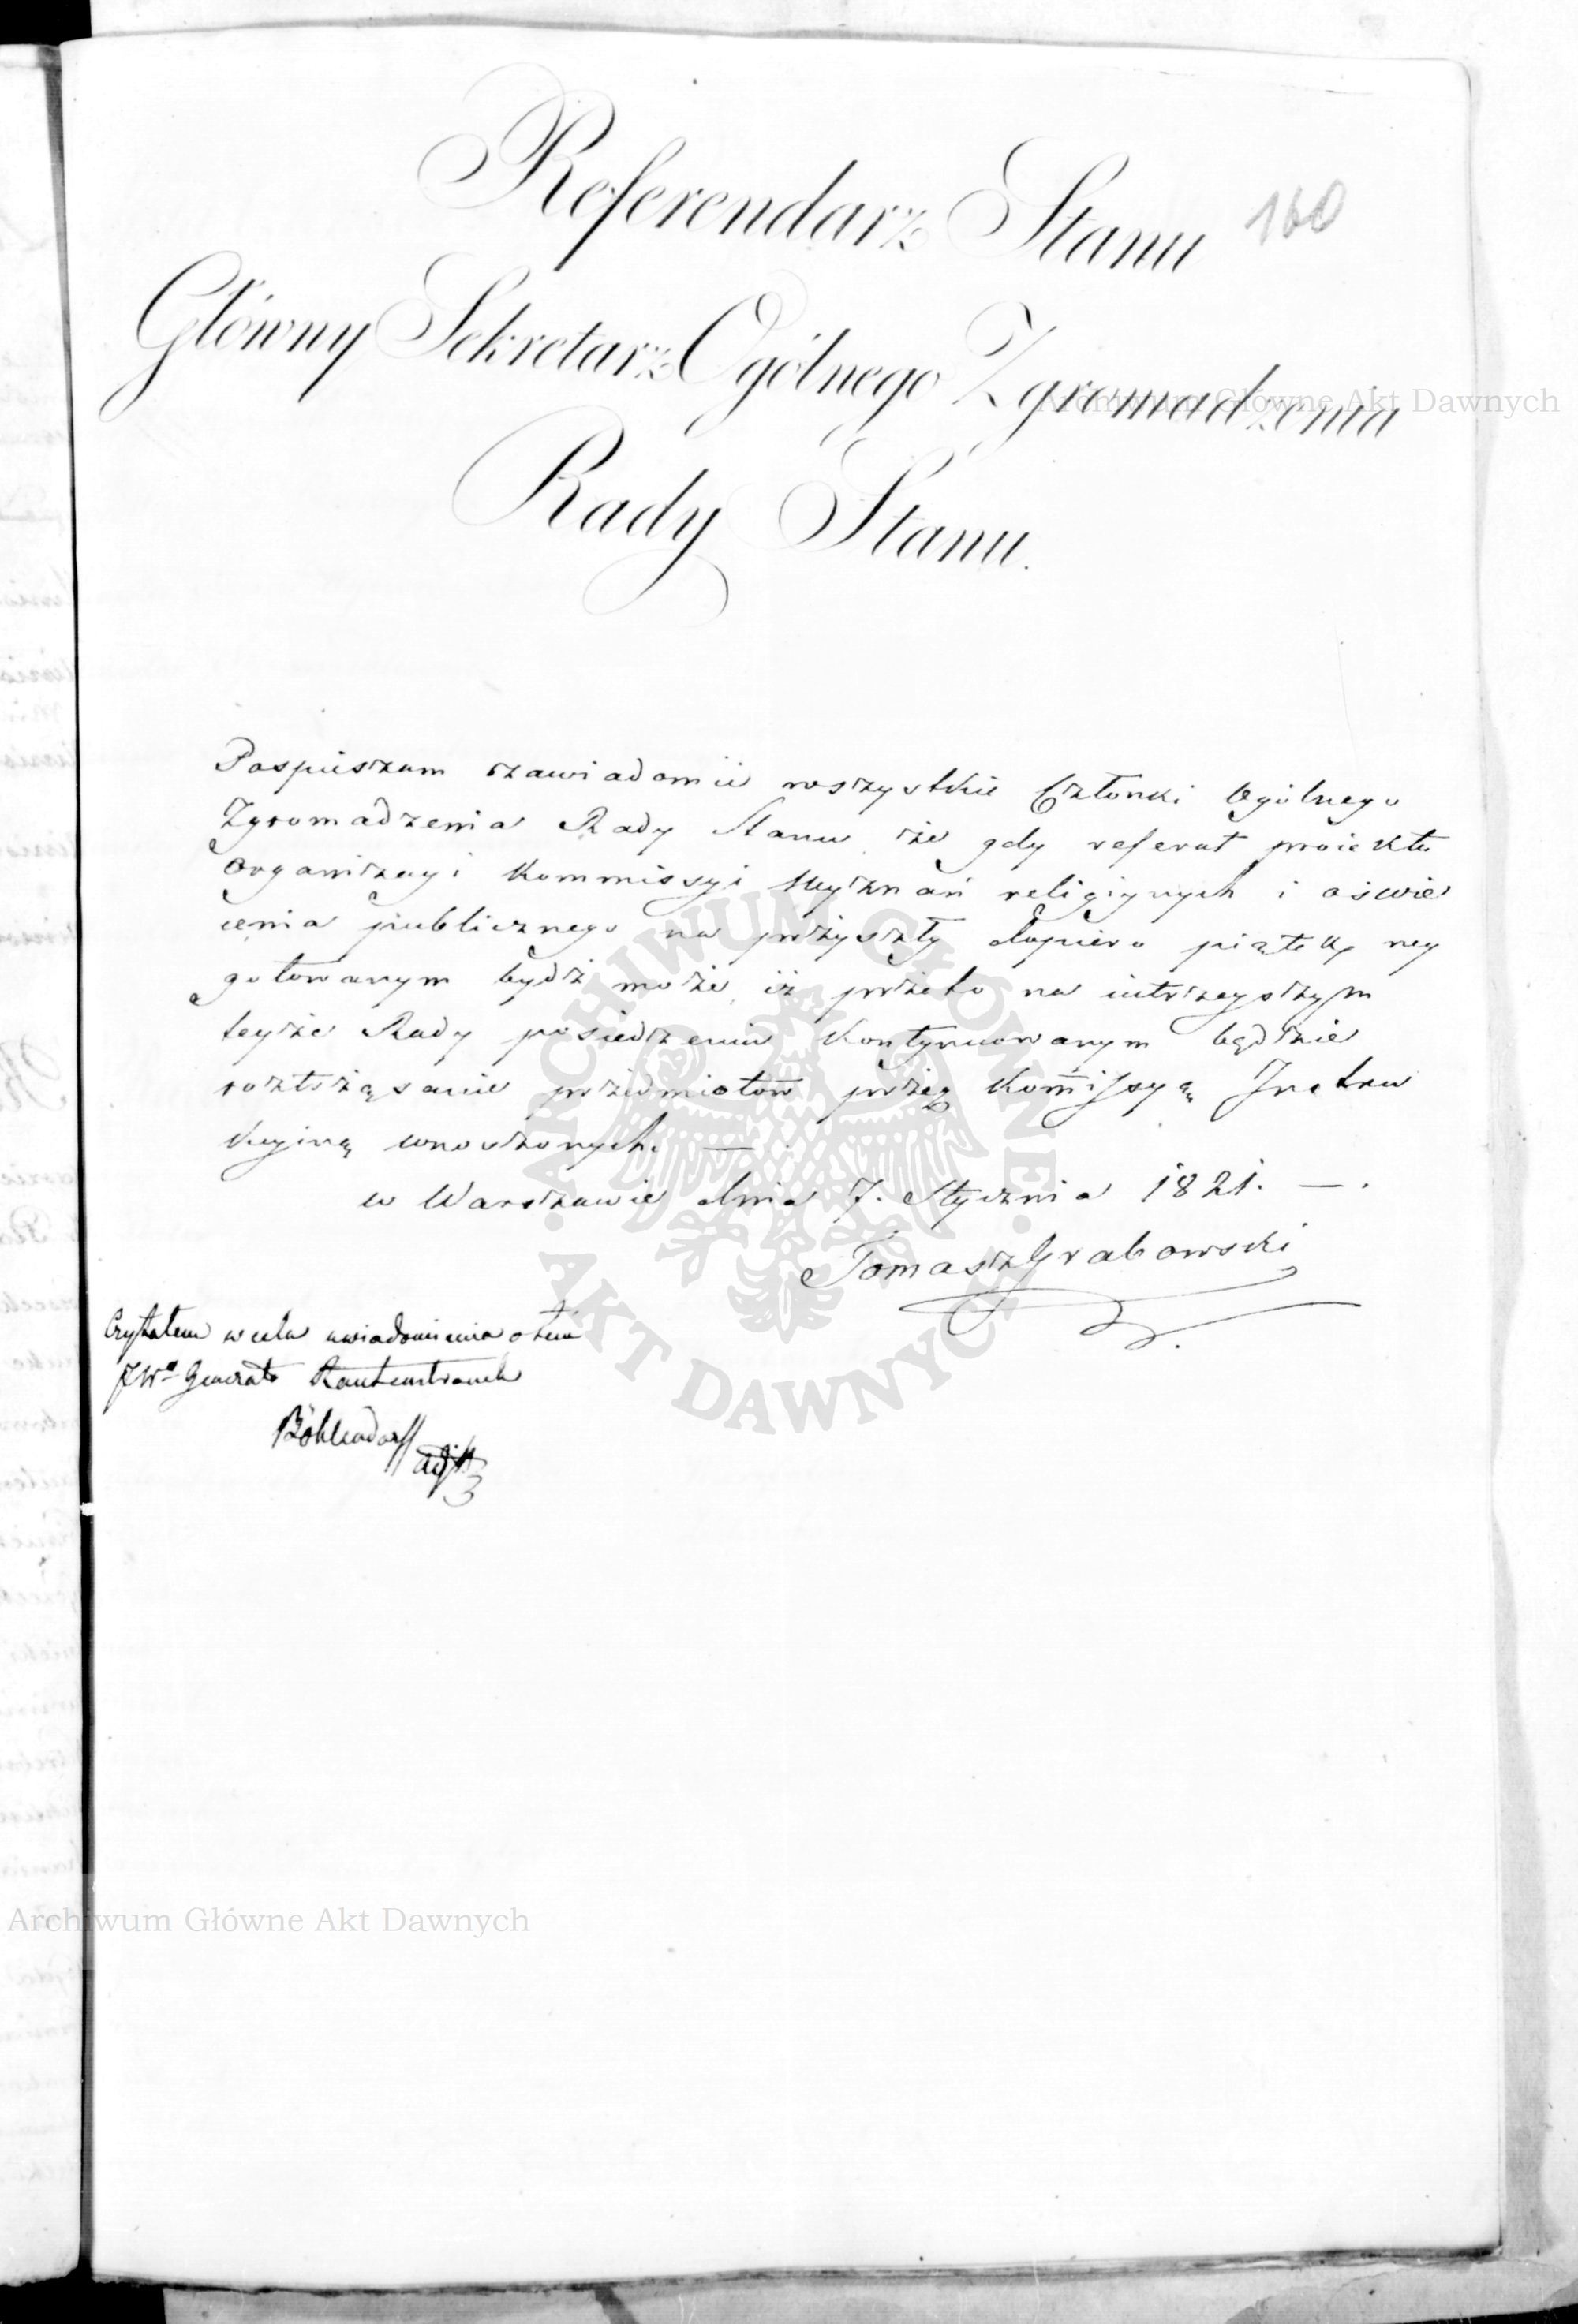 Referendarz Stanu 160
Główny Sekretarz Ogólnego Zgromadzenia
Rady Stanu.
Pospieszam zawiadomić wszystkie Członki Ogólnego
Zgromadzenia Rady Stanu, że gdy referat proiektu
organizacyi Kommissyi Wyznań religiynych i oświe
cenia publicznego na przyszły dopiero piątek, wy
gotowanym bydź może, iż przeto na iutrzeyszym
teyże Rady posiedzeniu kontynuowanym będzie
roztrząsanie przedmiotów przez Kom̅issyą Instru
kcyiną wnoszonych. —
w Warszawie dnia 7. Stycznia 1821. —.
Tomasz Grabowski
Czytałem w celu uwiadomienia o tem
JWo Generała Rautenstrauch
Böhlendorff adjtt
Archiwum Główne Akt Dawnych
ARCHIWUM GŁÓWNE · AKT DAWNYCH ·
Archiwum Główne Akt Dawnych